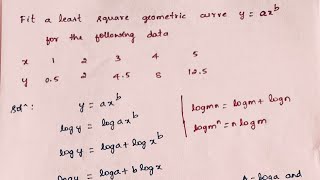 Fit a least square geometric curve y = ax^b
for the following data
x 1 2 3 4 5
y 0.5 2 4.5 8 12.5
Solⁿ: y = ax^b
log y = log ax^b
log y = log a + log x^b
log y = log a + b log x
log mn = log m + log n
log mⁿ = n log m
A = log a and